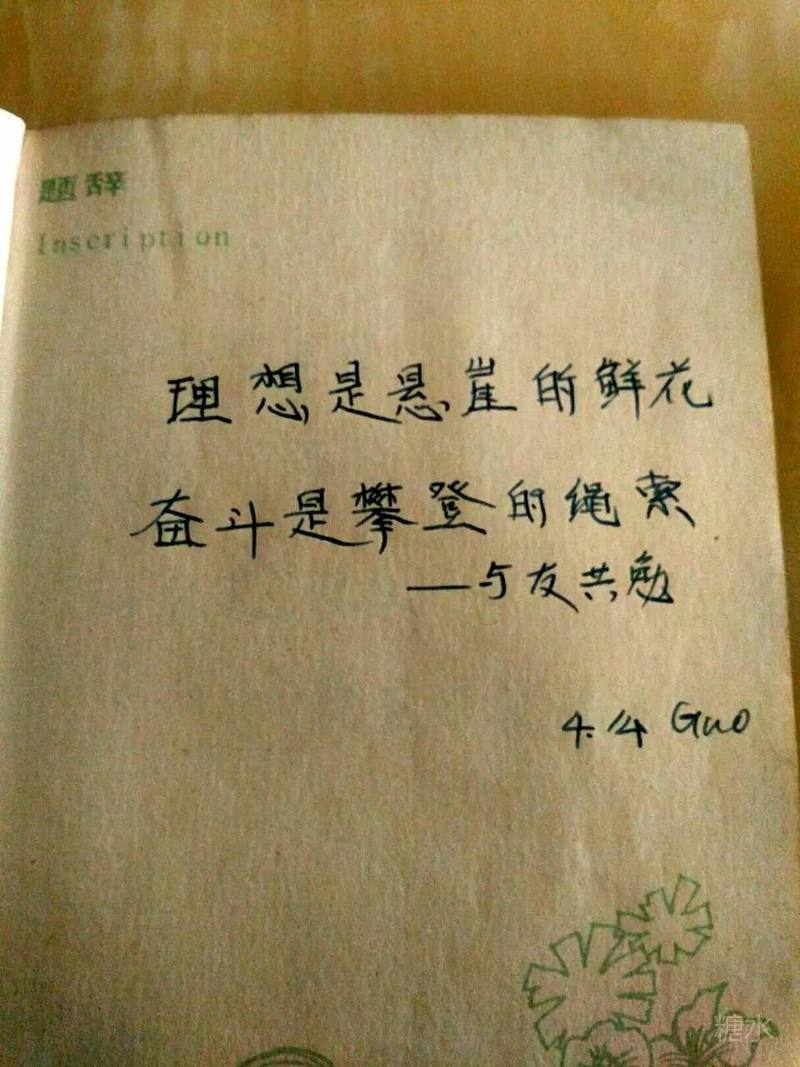 题辞
Inscription
理想是悬崖的鲜花
奋斗是攀登的绳索
——与友共勉
4.14 Guo
糖水